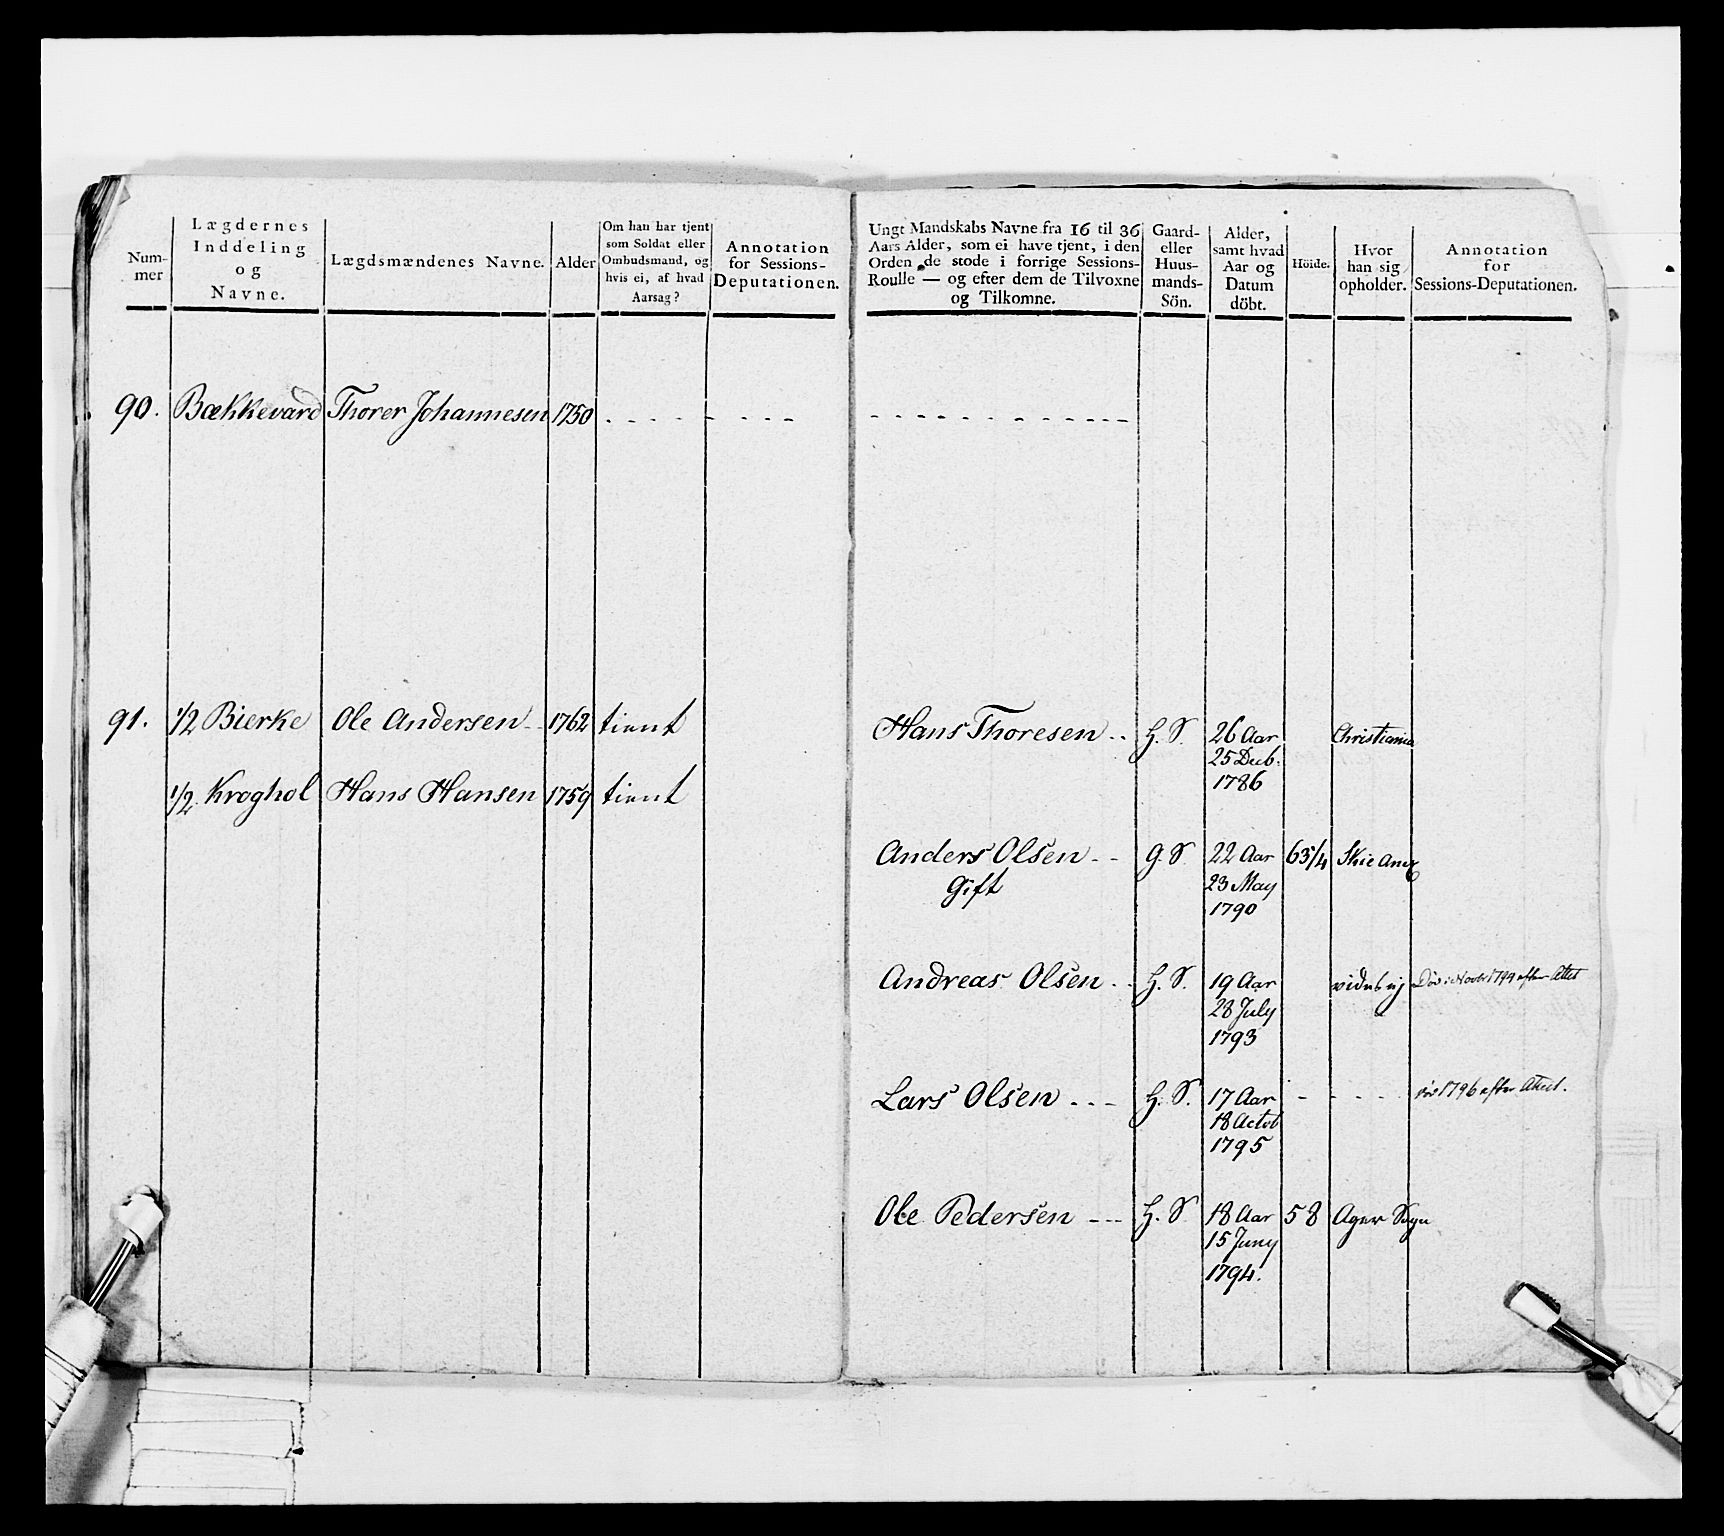 Num-
mer
Lægdernes
Inddeling
og
Navne.
Lægdsmændenes Navne.
Alder
Om han har tjent
som Soldat eller
Ombudsmand, og
hvis ei, af hvad
Aarsag?
Annotation
for Sessions-
Deputationen.
90. Bækkevard Thorer Johannesen 1750
91. 1/2 Bierke Ole Andersen 1762 tient
1/2 Kroghol Hans Hansen 1759 tient
Ungt Mandskabs Navne fra 16 til 36
Aars Alder, som ei have tjent, i den
Orden de stode i forrige Sessions-
Roulle — og efter dem de Tilvoxne
og Tilkomne.
Gaard-
eller
Huus-
mands-
Sön.
Alder,
samt hvad
Aar og
Datum
döbt.
Höide.
Hvor
han sig
opholder.
Annotation
for
Sessions-Deputationen.
Hans Thoresen H. S. 26 Aar Christiania
25 Decb.
1786
Anders Olsen G. S. 22 Aar 63/4 Skie
Gift 23 May
1790
Andreas Olsen H. S. 19 Aar vides ej efter Attest
28 July
1793
Lars Olsen H. S. 17 Aar 1796 efter Attest.
18 Octob
1795
Ole Pedersen H. S. 18 Aar 58 Ager Sogn
15 Juny
1794.